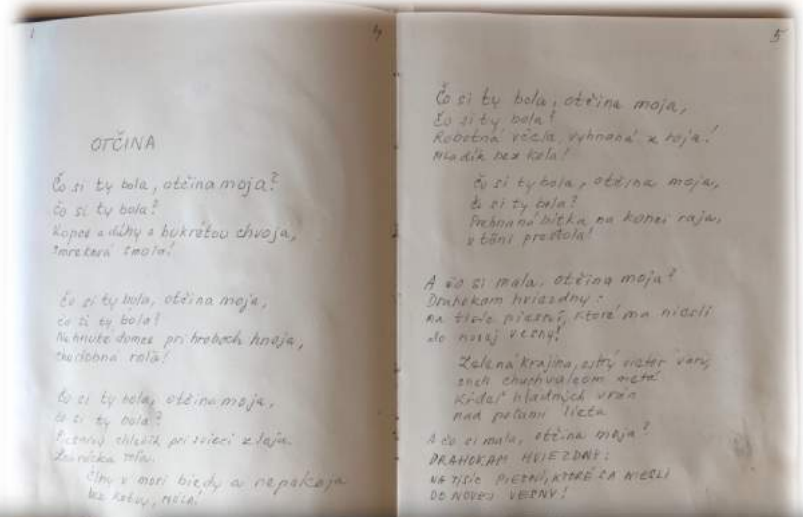 4
OTČINA
Čo si ty bola, otčina moja?
čo si ty bola?
Kopce a dúhy s bukrétou chvoja,
smreková smola!
čo si ty bola, otčina moja,
čo si ty bola?
Nahnuté domce pri hroboch hnoja,
chudobná roľa!
čo si ty bola, otčina moja,
čo si ty bola?
chlebík pri svieci z laja
Čln v mori biedy a nepokoja
bez kotvy,
5
Čo si ty bola, otčina moja,
čo si ty bola?
Robotná včela, vyhnaná z roja!
Mladík bez kola!
čo si ty bola, otčina moja,
čo si ty bola?
bitka na konci raja,
v tôni prestola!
A čo si mala, otčina moja?
Drahokam hviezdny:
na tisíc piesní, ktoré ma niesli
do novej vesny!
Zelená krajina, ostrý vieter
sneh chuchvalcom metá
Kŕdeľ hladných vrán
nad poľami lieta
A čo si mala, otčina moja?
DRAHOKAM HVIEZDNY:
NA TISÍC PIESNÍ, KTORÉ SA NIESLI
DO NOVEJ VESNY!